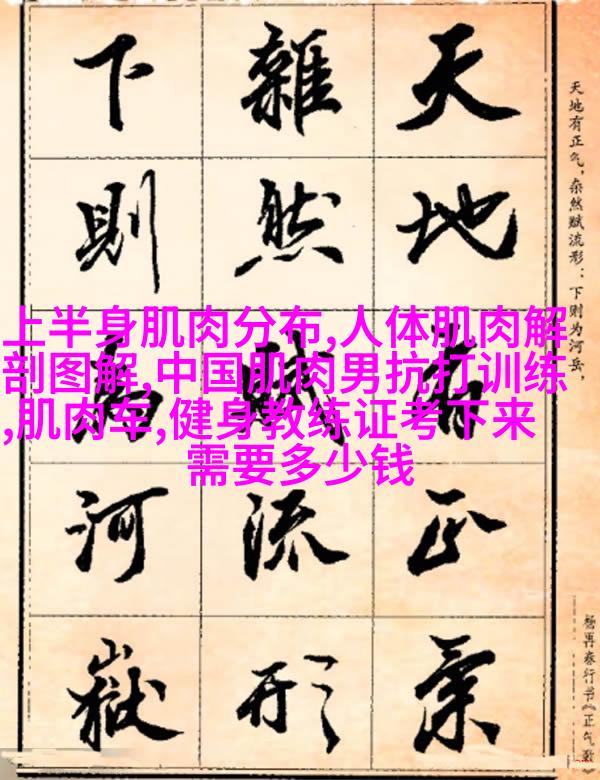 天地有正气，杂然赋流形：下则为河岳，
天地有正氣
雜然賦流形
下則為河嶽
杨再春行书《正气歌》
上半身肌肉分布,人体肌肉解
剖图解,中国肌肉男抗打训练
,肌肉车,健身教练证考下来
需要多少钱